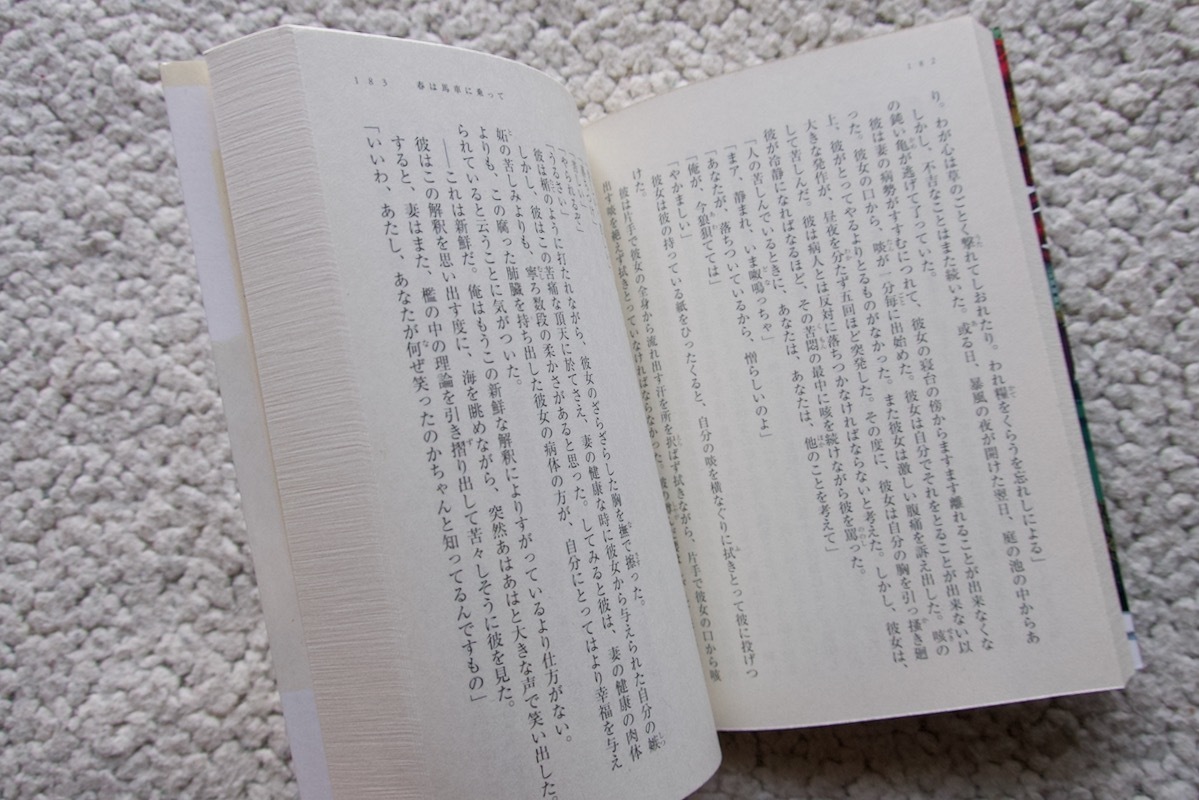 182
り。わが心は草のごとく撃れてしおれたり。われ糧をくらうを忘れしによる」
しかし、不吉なことはまた続いた。或る日、暴風の夜が開けた翌日、庭の池の中からあ
の鈍い亀が逃げて了っていた。
彼は妻の病勢がすすむにつれて、彼女の寝台の傍からますます離れることが出来なくな
った。彼女の口から、啖が一分毎に出始めた。彼女は自分でそれをとることが出来ない以
上、彼がとってやるよりとるものがなかった。また彼女は激しい腹痛を訴え出した。咳の
大きな発作が、昼夜を分たず五回ほど突発した。その度に、彼女は自分の胸を引っ掻き廻
して苦しんだ。彼は病人とは反対に落ちつかなければならないと考えた。しかし、彼女は、
彼が冷静になればなるほど、その苦悶の最中に咳を続けながら彼を罵った。
「人の苦しんでいるときに、あなたは、あなたは、他のことを考えて」
「まア、静まれ、いま呶鳴っちゃ」
「あなたが、落ちついているから、憎らしいのよ」
「俺が、今狼狽ては」
「やかましい」
彼女は彼の持っている紙をひったくると、自分の啖を横なぐりに拭きとって彼に投げつ
けた。
彼は片手で彼女の全身から流れ出す汗を所を択ばず拭きながら、片手で彼女の口から咳
出す啖を絶えず拭きとっていなければならなかった。
183 春は馬車に乗って
「やられるぞ」
「うるさい」
彼は楯のように打たれながら、彼女のざらざらした胸を撫で擦った。
しかし、彼はこの苦痛な頂天に於てさえ、妻の健康な時に彼女から与えられた自分の嫉
妬の苦しみよりも、寧ろ数段の柔かさがあると思った。してみると彼は、妻の健康の肉体
よりも、この腐った肺臓を持ち出した彼女の病体の方が、自分にとってはより幸福を与え
られていると云うことに気がついた。
――これは新鮮だ。俺はもうこの新鮮な解釈によりすがっているより仕方がない。
彼はこの解釈を思い出す度に、海を眺めながら、突然あはあはと大きな声で笑い出した。
すると、妻はまた、檻の中の理論を引き摺り出して苦々しそうに彼を見た。
「いいわ、あたし、あなたが何ぜ笑ったのかちゃんと知ってるんですもの」